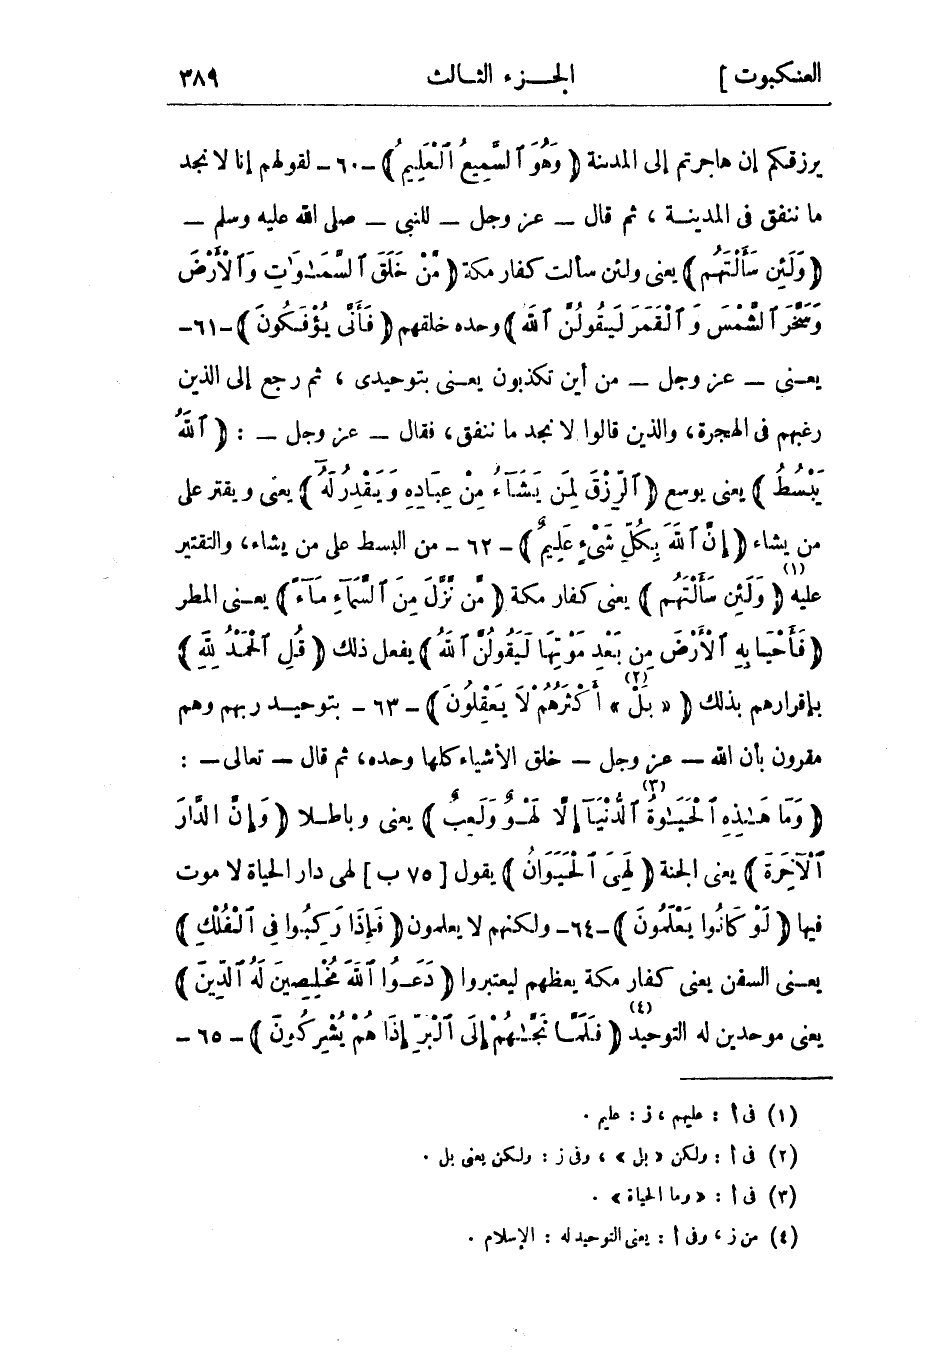 العنكبوت ] الجـزء الثـالث ٣٨٩
يرزقكم إن هاجرتم إلى المدينة ﴿ وَهُوَ ٱلسَّمِيعُ ٱلْعَلِيمُ ﴾ - ٦٠ - لقولهم إنا لا نجد
ما ننفق فى المدينـة ، ثم قال - عز وجل - للنبى - صلى الله عليه وسلم -
﴿ وَلَئِن سَأَلْتَهُم ﴾ يعنى ولئن سألت كفار مكة ﴿ مَّنْ خَلَقَ ٱلسَّمَـٰوَٰتِ وَٱلْأَرْضَ
وَسَخَّرَ ٱلشَّمْسَ وَٱلْقَمَرَ لَيَقُولُنَّ ٱللَّهُ ﴾ وحده خلقهم ﴿ فَأَنَّىٰ يُؤْفَكُونَ ﴾ - ٦١ -
يعـنى - عز وجل - من أين تكذبون يعـنى بتوحيدى ، ثم رجع إلى الذين
رغبهم فى الهجرة، والذين قالوا لا نجد ما ننفق، فقال - عز وجل - : ﴿ ٱللَّهُ
يَبْسُطُ ﴾ يعنى يوسع ﴿ ٱلرِّزْقَ لِمَن يَشَآءُ مِنْ عِبَادِهِ وَيَقْدِرُ لَهُٓ ﴾ يعنى ويقتر على
من يشاء ﴿ إِنَّ ٱللَّهَ بِكُلِّ شَىْءٍ عَلِيمٌ ﴾ - ٦٢ - من البسط على من يشاء، والتقتير
عليه (١) ﴿ وَلَئِن سَأَلْتَهُم ﴾ يعنى كفار مكة ﴿ مَّن نَّزَّلَ مِنَ ٱلسَّمَآءِ مَآءً ﴾ يعـنى المطر
﴿ فَأَحْيَا بِهِ ٱلْأَرْضَ مِن بَعْدِ مَوْتِهَا لَيَقُولُنَّ ٱللَّهُ ﴾ يفعل ذلك ﴿ قُلِ ٱلْحَمْدُ لِلَّهِ ﴾
بإقرارهم بذلك ﴿ « بَلْ » (٢) أَكْثَرُهُمْ لَا يَعْقِلُونَ ﴾ - ٦٣ - بتوحيـد ربهم وهم
مقرون بأن الله - عز وجل - خلق الأشياء كلها وحده، ثم قال - تعالى - :
﴿ وَمَا هَـٰذِهِ ٱلْحَيَـٰوةُ (٣) ٱلدُّنْيَآ إِلَّا لَهْوٌ وَلَعِبٌ ﴾ يعنى وباطـلا ﴿ وَإِنَّ الدَّارَ
ٱلْآخِرَةَ ﴾ يعنى الجنة ﴿ لَهِىَ ٱلْحَيَوَانُ ﴾ يقول [ ٧٥ ب ] لهى دار الحياة لا موت
فيها ﴿ لَوْ كَانُوا يَعْلَمُونَ ﴾ - ٦٤ - ولكنهم لا يعلمون ﴿ فَإِذَا رَكِبُوا فِى ٱلْفُلْكِ ﴾
يعـنى السفن يعنى كفار مكة يعظهم ليعتبروا ﴿ دَعَـوُا ٱللَّهَ مُخْلِصِينَ لَهُ ٱلدِّينَ ﴾
يعنى موحدين له التوحيد (٤) ﴿ فَلَمَّـا نَجَّـٰهُمْ إِلَى ٱلْبَرِّ إِذَا هُمْ يُشْرِكُونَ ﴾ - ٦٥ -
(١) فى أ : عليهم ، ز : عليم .
(٢) فى أ : ولكن « بل » ، وفى ز : ولكن يعنى بل .
(٣) فى أ : « وما الحياة » .
(٤) من ز ، وفى أ : يعنى التوحيد له : الإسلام .